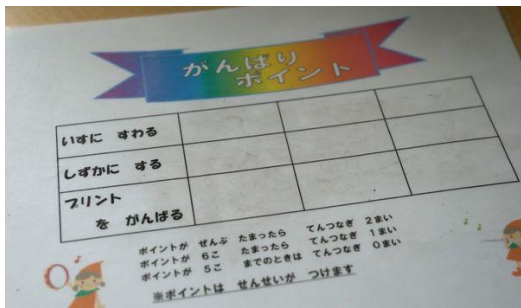 がんばり
ポイント
いすに すわる
しずかに する
プリント
を がんばる
ポイントが ぜんぶ たまったら てんつなぎ 2まい
ポイントが 6こ たまったら てんつなぎ 1まい
ポイントが 5こ までのときは てんつなぎ 0まい
※ポイントは せんせいが つけます